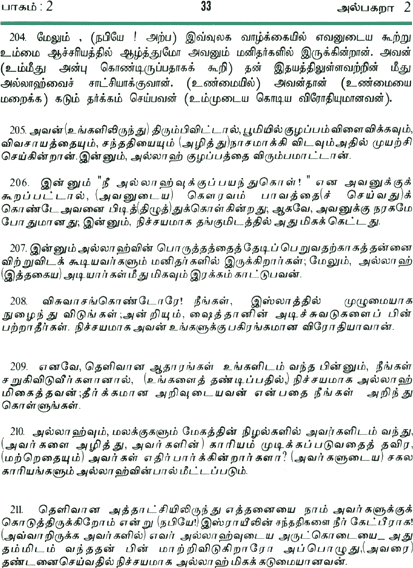 பாகம் : 2 33 அல்பகரா 2
204. மேலும் , (நபியே ! அற்ப) இவ்வுலக வாழ்க்கையில் எவனுடைய கூற்று
உம்மை ஆச்சரியத்தில் ஆழ்த்துமோ அவனும் மனிதர்களில் இருக்கின்றான். அவன்
(உம்மீது அன்பு கொண்டிருப்பதாகக் கூறி) தன் இதயத்திலுள்ளவற்றின் மீது
அல்லாஹ்வைச் சாட்சியாக்குவான். (உண்மையில்) அவன்தான் (உண்மையை
மறைக்க) கடும் தர்க்கம் செய்பவன் (உம்முடைய கொடிய விரோதியுமானவன்).
205. அவன் (உங்களிலிருந்து) திரும்பிவிட்டால், பூமியில் குழப்பம் விளைவிக்கவும்,
விவசாயத்தையும், சந்ததியையும் (அழித்து) நாசமாக்கி விடவும் அதில் முயற்சி
செய்கின்றான். இன்னும், அல்லாஹ் குழப்பத்தை விரும்பமாட்டான்.
206. இன்னும் "நீ அல்லாஹ்வுக்குப் பயந்துகொள்! " என அவனுக்குக்
கூறப்பட்டால், (அவனுடைய) கௌரவம் பாவத்தை(ச் செய்வது)க்
கொண்டே அவனை பிடித்(திழுத்)துக்கொள்கின்றது, ஆகவே, அவனுக்கு நரகமே
போதுமானது; இன்னும், நிச்சயமாக தங்குமிடத்தில் அது மிகக் கெட்டது.
207. இன்னும் அல்லாஹ்வின் பொருத்தத்தைத் தேடிப் பெறுவதற்காகத் தன்னை
விற்றுவிடக் கூடியவர்களும் மனிதர்களில் இருக்கிறார்கள்; மேலும், அல்லாஹ்
(இத்தகைய) அடியார்கள் மீது மிகவும் இரக்கம் காட்டுபவன்.
208. விசுவாசங்கொண்டோரே! நீங்கள், இஸ்லாத்தில் முழுமையாக
நுழைந்து விடுங்கள்; அன்றியும், ஷைத்தானின் அடிச்சுவடுகளைப் பின்
பற்றாதீர்கள். நிச்சயமாக அவன் உங்களுக்கு பகிரங்கமான விரோதியாவான்.
209. எனவே, தெளிவான ஆதாரங்கள் உங்களிடம் வந்த பின்னும், நீங்கள்
சறுகிவிடுவீர்களானால், (உங்களைத் தண்டிப்பதில்,) நிச்சயமாக அல்லாஹ்
மிகைத்தவன்; தீர்க்கமான அறிவுடையவன் என்பதை நீங்கள் அறிந்து
கொள்ளுங்கள்.
210. அல்லாஹ்வும், மலக்குகளும் மேகத்தின் நிழல்களில் அவர்களிடம் வந்து,
(அவர்களை அழித்து, அவர்களின்) காரியம் முடிக்கப்படுவதைத் தவிர,
(மற்றெதையும்) அவர்கள் எதிர்பார்க்கின்றார்களா? (அவர்களுடைய) சகல
காரியங்களும் அல்லாஹ்வின்பால் மீட்டப்படும்.
211. தெளிவான அத்தாட்சியிலிருந்து எத்தனையை நாம் அவர்களுக்குக்
கொடுத்திருக்கிறோம் என்று (நபியே!) இஸ்ராயீலின் சந்ததிகளை நீர் கேட்பீராக!
(அவ்வாறிருக்க அவர்களில்) எவர் அல்லாஹ்வுடைய அருட்கொடையை_ அது
தம்மிடம் வந்ததன் பின் மாற்றிவிடுகிறாரோ அப்பொழுது, (அவரை)
தண்டனைசெய்வதில் நிச்சயமாக அல்லாஹ் மிகக்கடுமையானவன்.